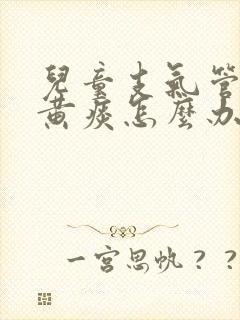 兒童支氣管
黃痰怎麼办
一宮思帆？？